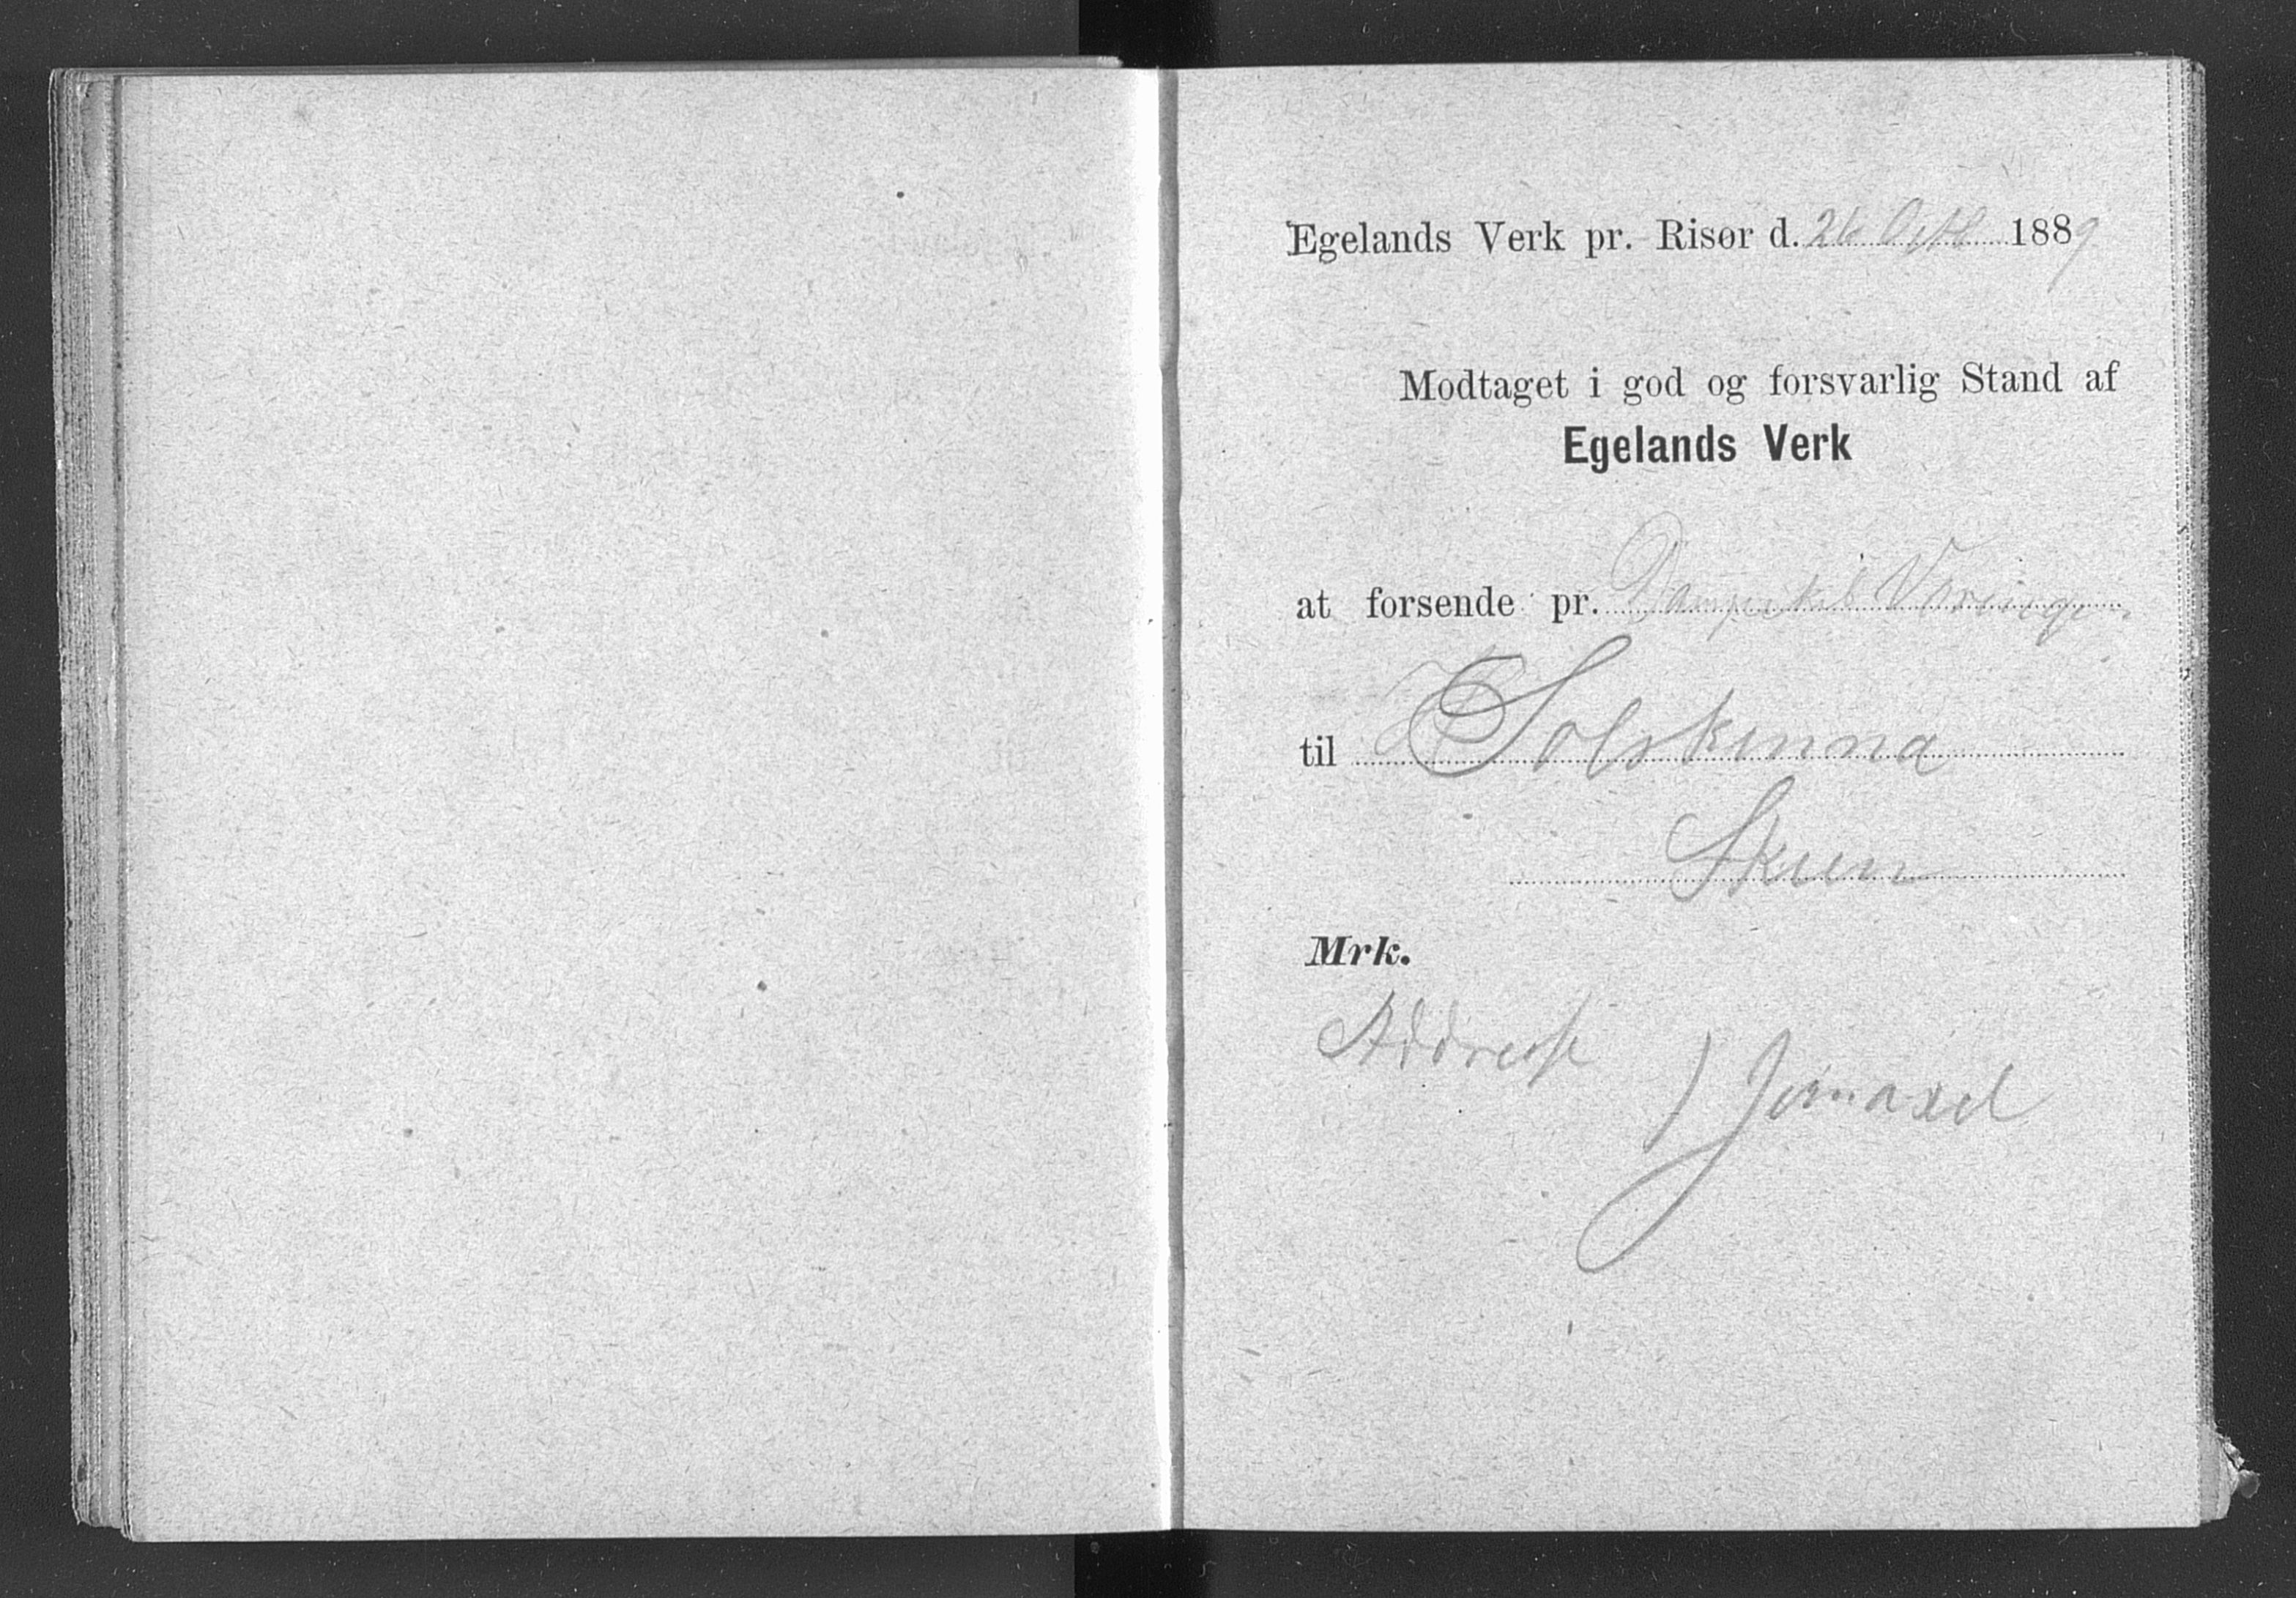 Egelands Verk pr. Risør d. 26 Octb 1889
Modtaget i god og forsvarlig Stand af
Egelands Verk
at forsende pr. Dampskib Væringen
til Solskinna
Skien
Mrk.
Addresse
1 Jernaxel